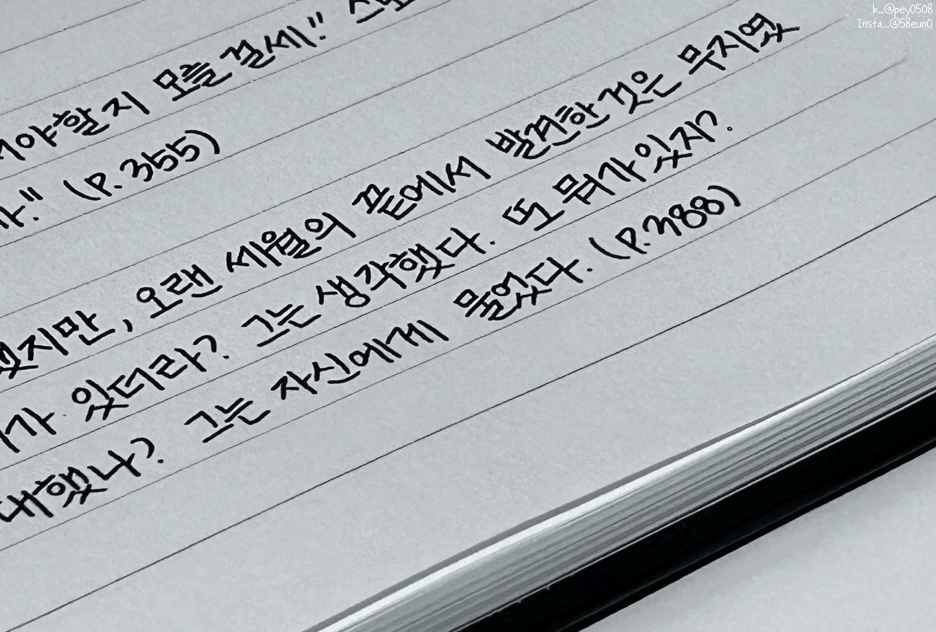 b_@pey0508
Insta_@58eun0
야할지 모를 걸세!."
" (P.355)
했지만, 오랜 세월의 끝에서 발견한 것은 무지였
가 있더라?. 그는 생각했다. 또 뭐가 있지?.
대했나?. 그는 자신에게 물었다. (P.388)